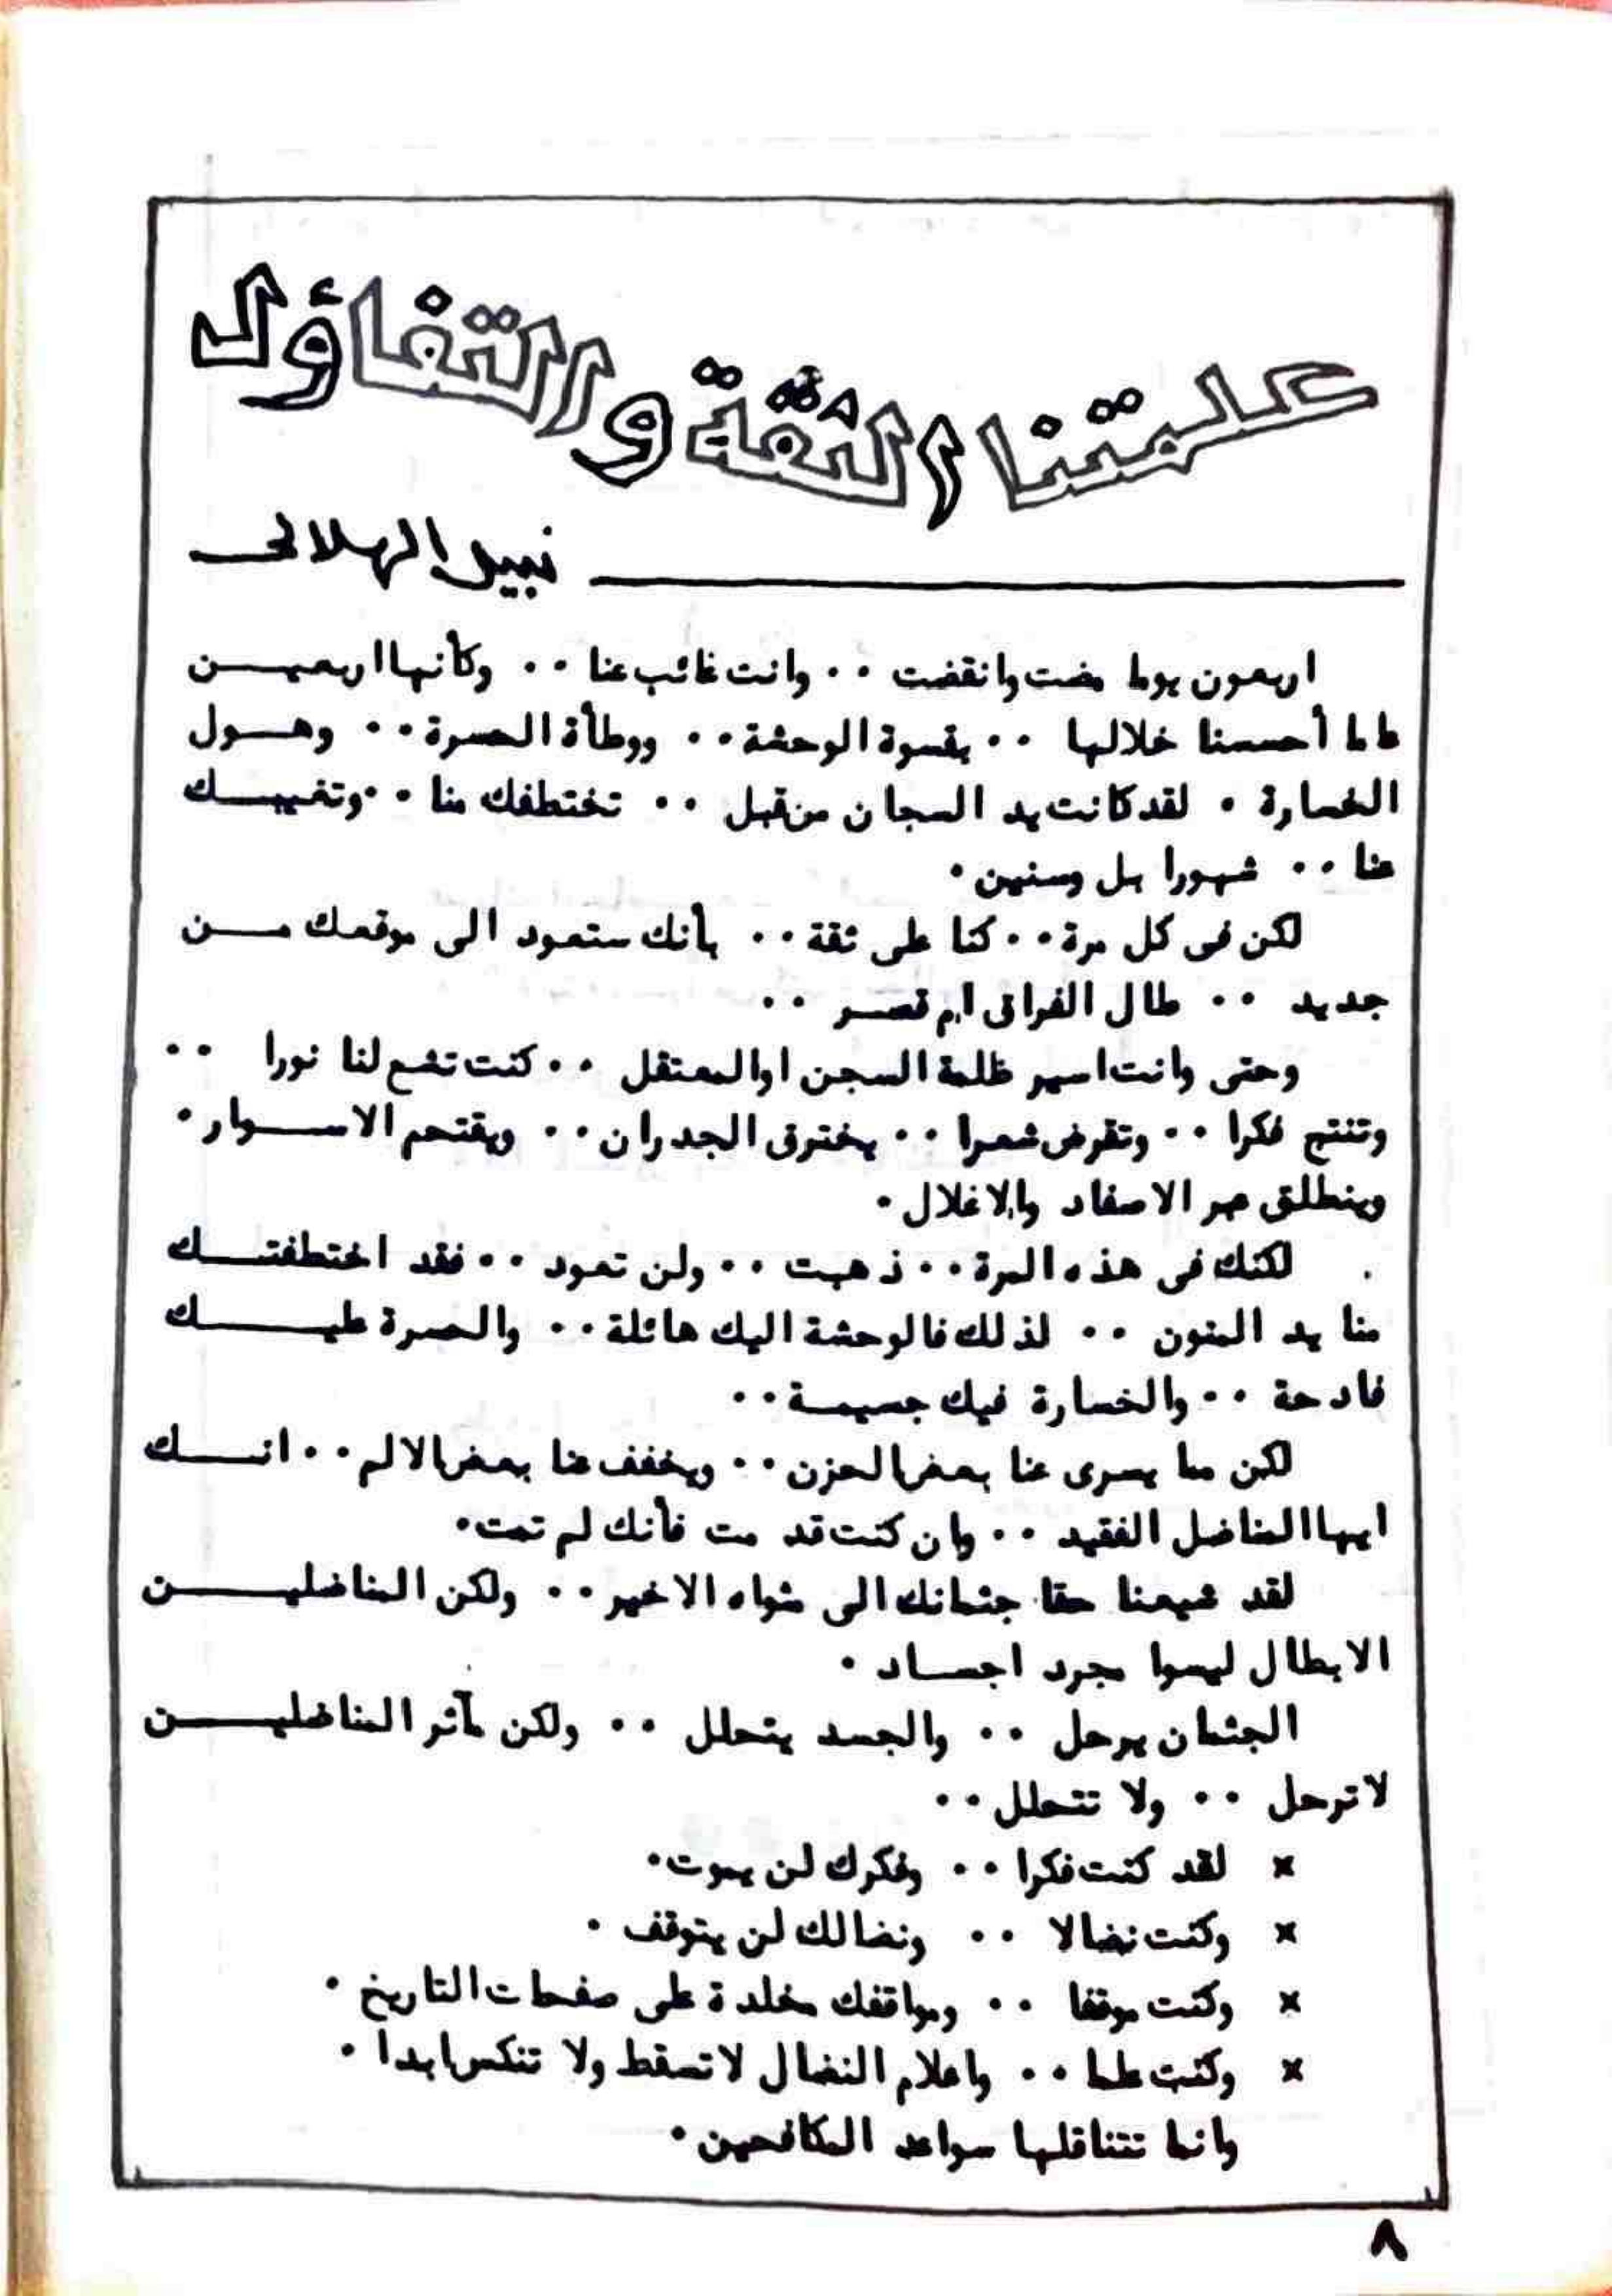 علمتنا الثقة والتفاؤل
نبيل الهلالى
اربعون يوما مضت وانقضت ٠٠ وانت غائب عنا ٠٠ وكأنها اربعيــن
عاما أحسسنا خلالها ٠٠ بقسوة الوحشة ٠٠ ووطأة الحسرة ٠٠ وهــول
الخسارة ٠ لقد كانت يد السجان من قبل ٠٠ تختطفك منا ٠٠ وتغيبــك
عنا ٠٠ شهورا بل وسنين ٠
لكن فى كل مرة ٠٠ كنا على ثقة ٠٠ بأنك ستعود الى موقعك مــن
جديد ٠٠ طال الفراق ام قصــر ٠٠
وحتى وانت اسير ظلمة السجن او المعتقل ٠٠ كنت تشع لنا نورا ٠٠
وتنتج فكرا ٠٠ وتقرض شعرا ٠٠ يخترق الجدران ٠٠ ويقتحم الاســوار ٠
وينطلق عبر الاصفاد والاغلال ٠
لكنك فى هذه المرة ٠٠ ذهبت ٠٠ ولن تعود ٠٠ فقد اختطفتــك
منا يد المنون ٠٠ لذلك فالوحشة اليك هائلة ٠٠ والحسرة عليــك
فادحة ٠٠ والخسارة فيك جسيمــة ٠٠
لكن مما يسرى عنا بعض الحزن ٠٠ ويخفف عنا بعض الالم ٠٠ انــك
ايها المناضل الفقيد ٠٠ وان كنت قد مت فأنك لم تمت ٠
لقد شيعنا حقا جثمانك الى مثواه الاخير ٠٠ ولكن المناضليــن
الابطال ليسوا مجرد اجســاد ٠
الجثمان يرحل ٠٠ والجسد يتحلل ٠٠ ولكن مآثر المناضليــن
لا ترحل ٠٠ ولا تتحلل ٠٠
× لقد كنت فكرا ٠٠ وفكرك لن يموت ٠
× وكنت نضالا ٠٠ ونضالك لن يتوقف ٠
× وكنت موقفا ٠٠ ومواقفك مخلدة على صفحات التاريخ ٠
× وكنت علما ٠٠ واعلام النضال لا تسقط ولا تنكس ابدا ٠
وانما تتناقلها سواعد المكافحين ٠
٨